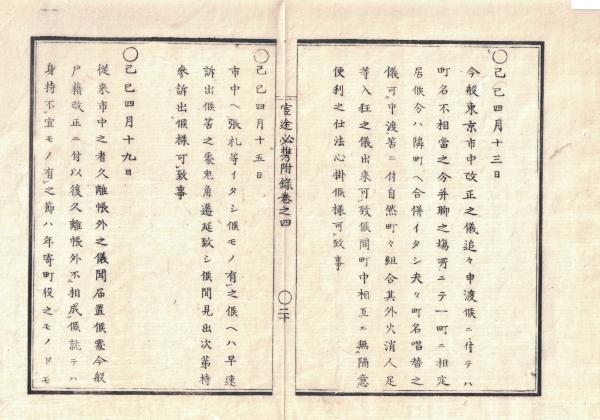 〇己巳四月十三日
今般東京市中改正之儀追々申渡候ニ付テハ
町名不相當之分并聊之場所ニテ一町ニ相定
居候分ハ隣町ヘ合併イタシ夫々町名唱替之
儀可申渡筈ニ付自然町々組合其外火消人足
等入狂之儀出来可致候間町中相互ニ無隔意
便利之仕法心掛候様可致事
官途必携附錄卷之四
〇二十
〇己巳四月十五日
市中ヘ張札等イタシ候モノ有之候ヘハ早速
訴出候筈之處兎角遷延致シ候間見出次第持
參訴出候樣可致事
〇己巳四月十九日
從来市中之者久離帳外之儀聞届置候處今般
戸籍改正ニ付以後久離帳外不相成候就テハ
身持不宜モノ有之節ハ年寄町役之モノドモ